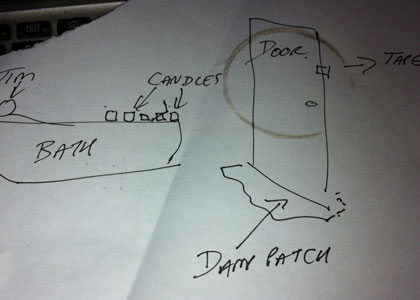 TIM
CANDLES
BATH
DOOR
TAPE
DAMP PATCH